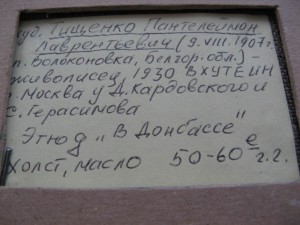 худ. Тищенко Пантелеймон
Лаврентьевич (9.VIII.1907г.
п. Волоконовка, Белгор. обл.) -
живописец, 1930 ВХУТЕИН
г. Москва у Д. Кардовского и
С. Герасимова
Этюд „В Донбассе"
Холст, масло 50-60е г.г.